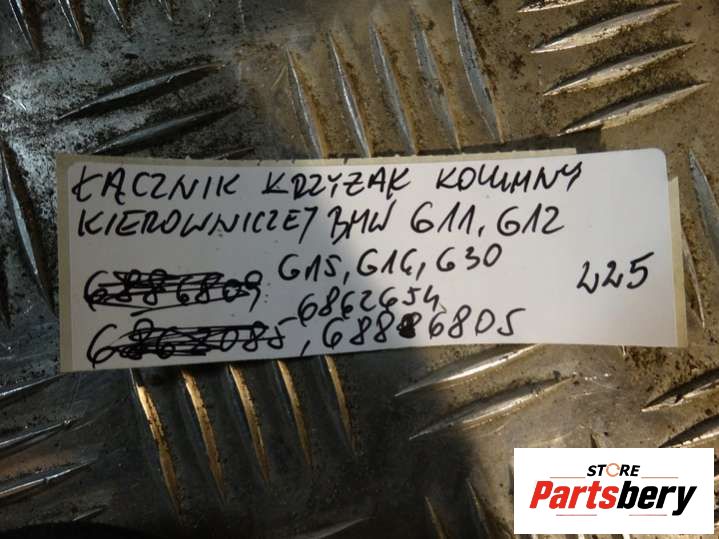 ŁĄCZNIK KRZYŻAK KOLUMNY
KIEROWNICZEJ BMW G11, G12
G15, G16, G30
6886809
225
6862654
6862085, 6886805
STORE
Partsbery